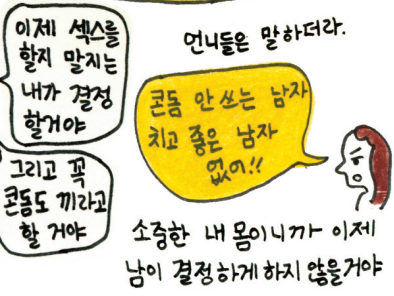 이제 섹스를
할지 말지는
내가 결정
할거야
그리고 꼭
콘돔도 끼라고
할 거야
언니들은 말하더라.
콘돔 안 쓰는 남자
치고 좋은 남자
없어!!
소중한 내 몸이니까 이제
남이 결정하게 하지 않을거야